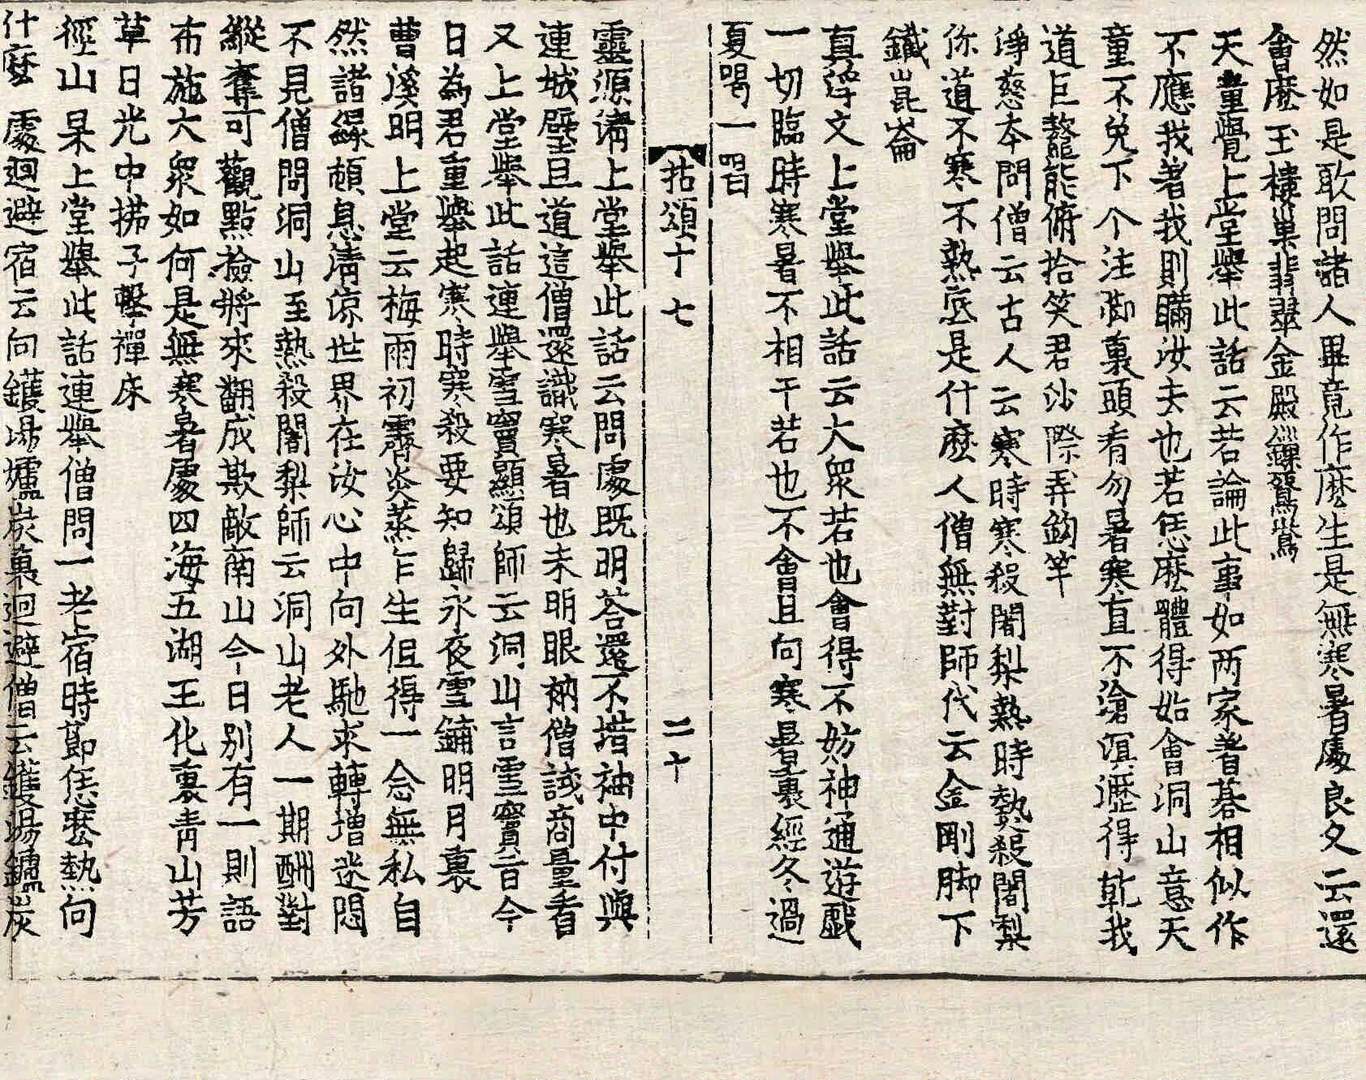 然如是敢問諸人畢竟作麽生是無寒暑處良久云還
會麽玉樓巢翡翠金殿鏁鴛鴦
天童覺上堂舉此話云若論此事如两家著碁相似作
不應我著我則瞞汝去也若恁麽體得始會洞山意天
童不免下个注脚裏頭看勿暑寒直下滄溟瀝得乾我
道巨鼇能俯拾笑君沙際弄釣竿
淨慈本問僧云古人云寒時寒殺闍梨熱時熱殺闍梨
你道不寒不熱底是什麽人僧無對師代云金剛脚下
鐵崑崙
真淨文上堂舉此話云大衆若也會得不妨神通遊戲
一切臨時寒暑不相干若也不會且向寒暑裏經冬過
夏喝一喝
拈頌十七 二十
靈源淸上堂舉此話云問處既明荅還不措袖中付與
連城璧且道這僧還識寒暑也未明眼衲僧試商量看
又上堂舉此話連舉雪竇顯頌師云洞山言雪竇音今
日為君重舉起寒時寒殺要知歸永夜雪鋪明月裏
曹溪明上堂云梅雨初霽炎蒸乍生但得一念無私自
然諸緣頓息淸凉世界在汝心中向外馳求轉增迷悶
不見僧問洞山至熱殺闍梨師云洞山老人一期酬對
縱奪可觀點撿將來翻成欺敵南山今日别有一則語
布施大衆如何是無寒暑處四海五湖王化裏靑山芳
草日光中拂子擊禪床
徑山杲上堂舉此話連舉僧問一老宿時節恁麽熱向
什麽處迴避宿云向鑊湯爐炭裏迴避僧云鑊湯鑪炭